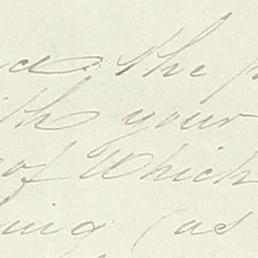 the
ith your
of Which
ing (as